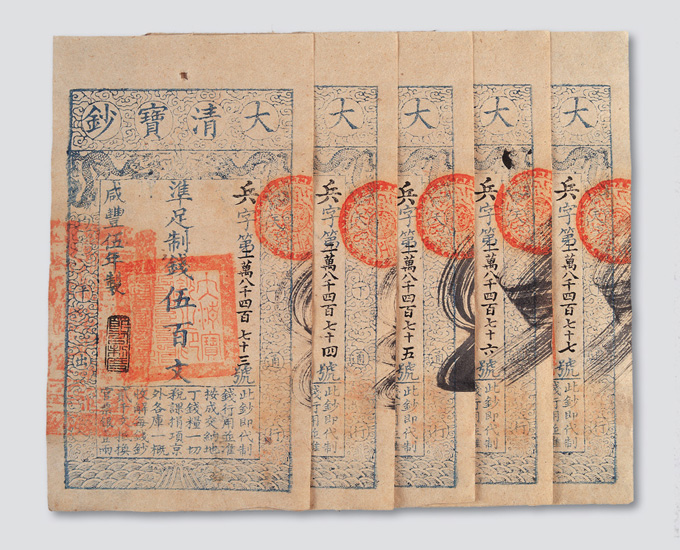 大清寶鈔
兵字第一萬八千四百七十三號
準足制錢伍百文
咸豐伍年製
此鈔即代制
錢行用並准
按成交納地
丁錢糧一切
稅課捐項京
外各庫一概
收解每錢鈔
貳千文抵換
官票銀壹兩
大
兵字第一萬八千四百七十四號
此鈔即代制
錢行用並准
大
兵字第一萬八千四百七十五號
此鈔即代制
錢行用並准
大
兵字第一萬八千四百七十六號
此鈔即代制
錢行用並准
大
兵字第一萬八千四百七十七號
此鈔即代制
錢行用並准